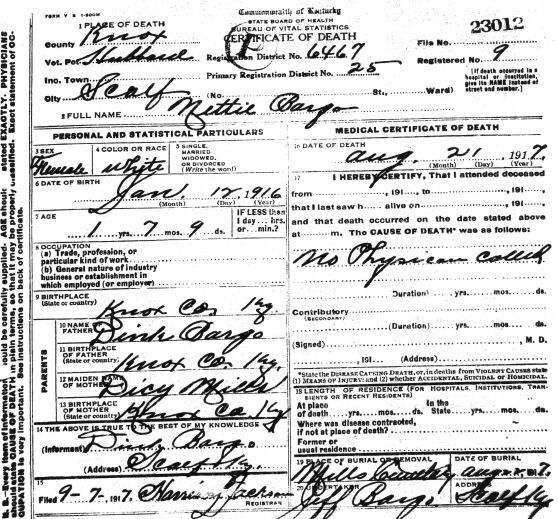 FORM V S 1-500M
Commonwealth of Kentucky
STATE BOARD OF HEALTH
BUREAU OF VITAL STATISTICS
CERTIFICATE OF DEATH
23012
1 PLACE OF DEATH
County Knox
Vot. Pct. Hubbard
Registration District No. 6467
File No.
Inc. Town
Primary Registration District No. 25
Registered No. 9
City Scalf (No. St., Ward)
[If death occurred in a hospital or institution, give its NAME instead of street and number.]
2 FULL NAME Nettie Bargo
PERSONAL AND STATISTICAL PARTICULARS
3 SEX Female
4 COLOR OR RACE White
5 SINGLE, MARRIED WIDOWED, OR DIVORCED (Write the word)
6 DATE OF BIRTH
Jan. 12 1916
(Month) (Day) (Year)
7 AGE
1 yrs. 7 mos. 9 ds.
IF LESS than 1 day... hrs. or min.?
8 OCCUPATION
(a) Trade, profession, or particular kind of work
(b) General nature of industry business or establishment in which employed (or employer)
9 BIRTHPLACE
(State or country) Knox Co. Ky
PARENTS
10 NAME OF FATHER Dink Bargo
11 BIRTHPLACE OF FATHER
(State or country) Knox Co. Ky.
12 MAIDEN NAME OF MOTHER Dicy Mills
13 BIRTHPLACE OF MOTHER
(State or country) Knox Co Ky
14 THE ABOVE IS TRUE TO THE BEST OF MY KNOWLEDGE
(Informant) Dink Bargo
(Address) Scalf Ky.
15
Filed 9-7-1917. Harrison Jackson
REGISTRAR
MEDICAL CERTIFICATE OF DEATH
16 DATE OF DEATH
Aug. 21, 1917.
(Month) (Day) (Year)
17 I HEREBY CERTIFY, That I attended deceased
from , 191 , to , 191 ,
that I last saw h alive on , 191 ,
and that death occurred on the date stated above
at m. The CAUSE OF DEATH* was as follows:
No Physican called
(Duration) yrs. mos. ds.
Contributory
(SECONDARY)
(Duration) yrs. mos. ds.
(Signed) , M. D.
, 191 (Address)
*State the DISEASE CAUSING DEATH, or, in deaths from VIOLENT CAUSES state (1) MEANS OF INJURY; and (2) whether ACCIDENTAL, SUICIDAL or HOMICIDAL.
18 LENGTH OF RESIDENCE (FOR HOSPITALS, INSTITUTIONS, TRANSIENTS OR RECENT RESIDENTS)
At place of death yrs. mos. ds. In the State yrs. mos. ds.
Where was disease contracted, if not at place of death?
Former or usual residence
19 PLACE OF BURIAL OR REMOVAL
Mills Cemetery
DATE OF BURIAL
Aug
20 UNDERTAKER
Jeff Bargo
ADDRESS
Scalf Ky